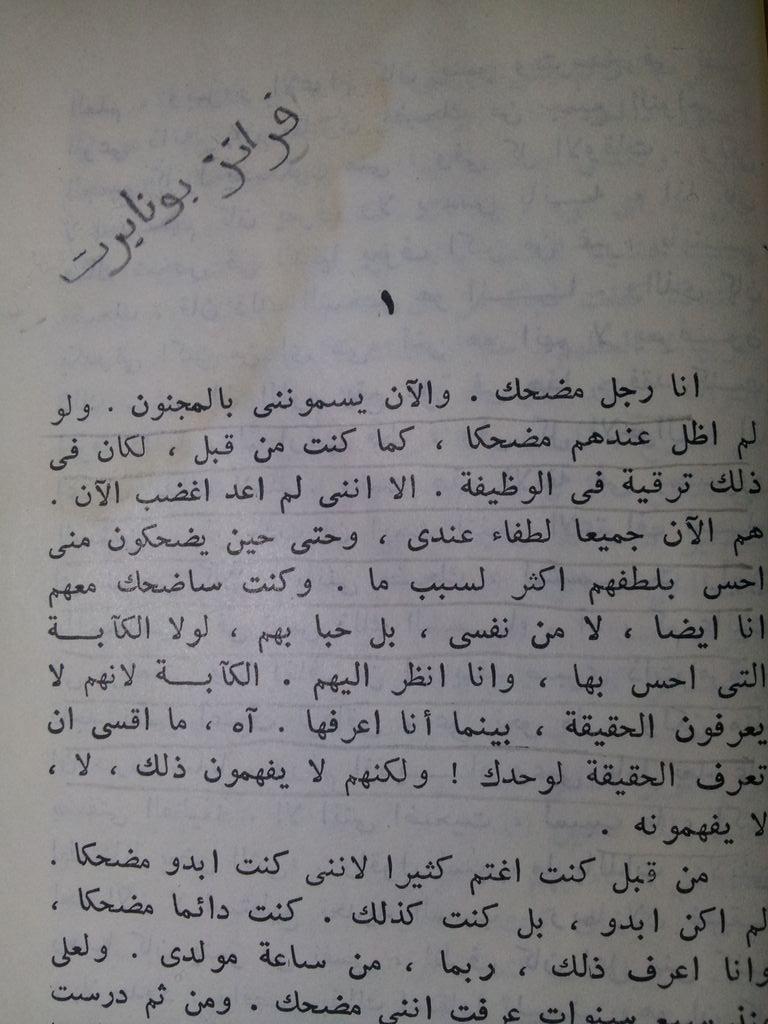 فرانز بونايرت
١
انا رجل مضحك . والآن يسموننى بالمجنون . ولو
لم اظل عندهم مضحكا ، كما كنت من قبل ، لكان فى
ذلك ترقية فى الوظيفة . الا اننى لم اعد اغضب الآن .
هم الآن جميعا لطفاء عندى ، وحتى حين يضحكون منى
احس بلطفهم اكثر لسبب ما . وكنت ساضحك معهم
انا ايضا ، لا من نفسى ، بل حبا بهم ، لولا الكآبــة
التى احس بها ، وانا انظر اليهم . الكآبــة لانهم لا
يعرفون الحقيقة ، بينما أنا اعرفها . آه ، ما اقسى ان
تعرف الحقيقة لوحدك ! ولكنهم لا يفهمون ذلك ، لا ،
لا يفهمونه .
من قبل كنت اغتم كثيرا لاننى كنت ابدو مضحكا .
لم اكن ابدو ، بل كنت كذلك . كنت دائما مضحكا ،
وانا اعرف ذلك ، ربما ، من ساعة مولدى . ولعلى
منذ سبع سنوات عرفت اننى مضحك . ومن ثم درست